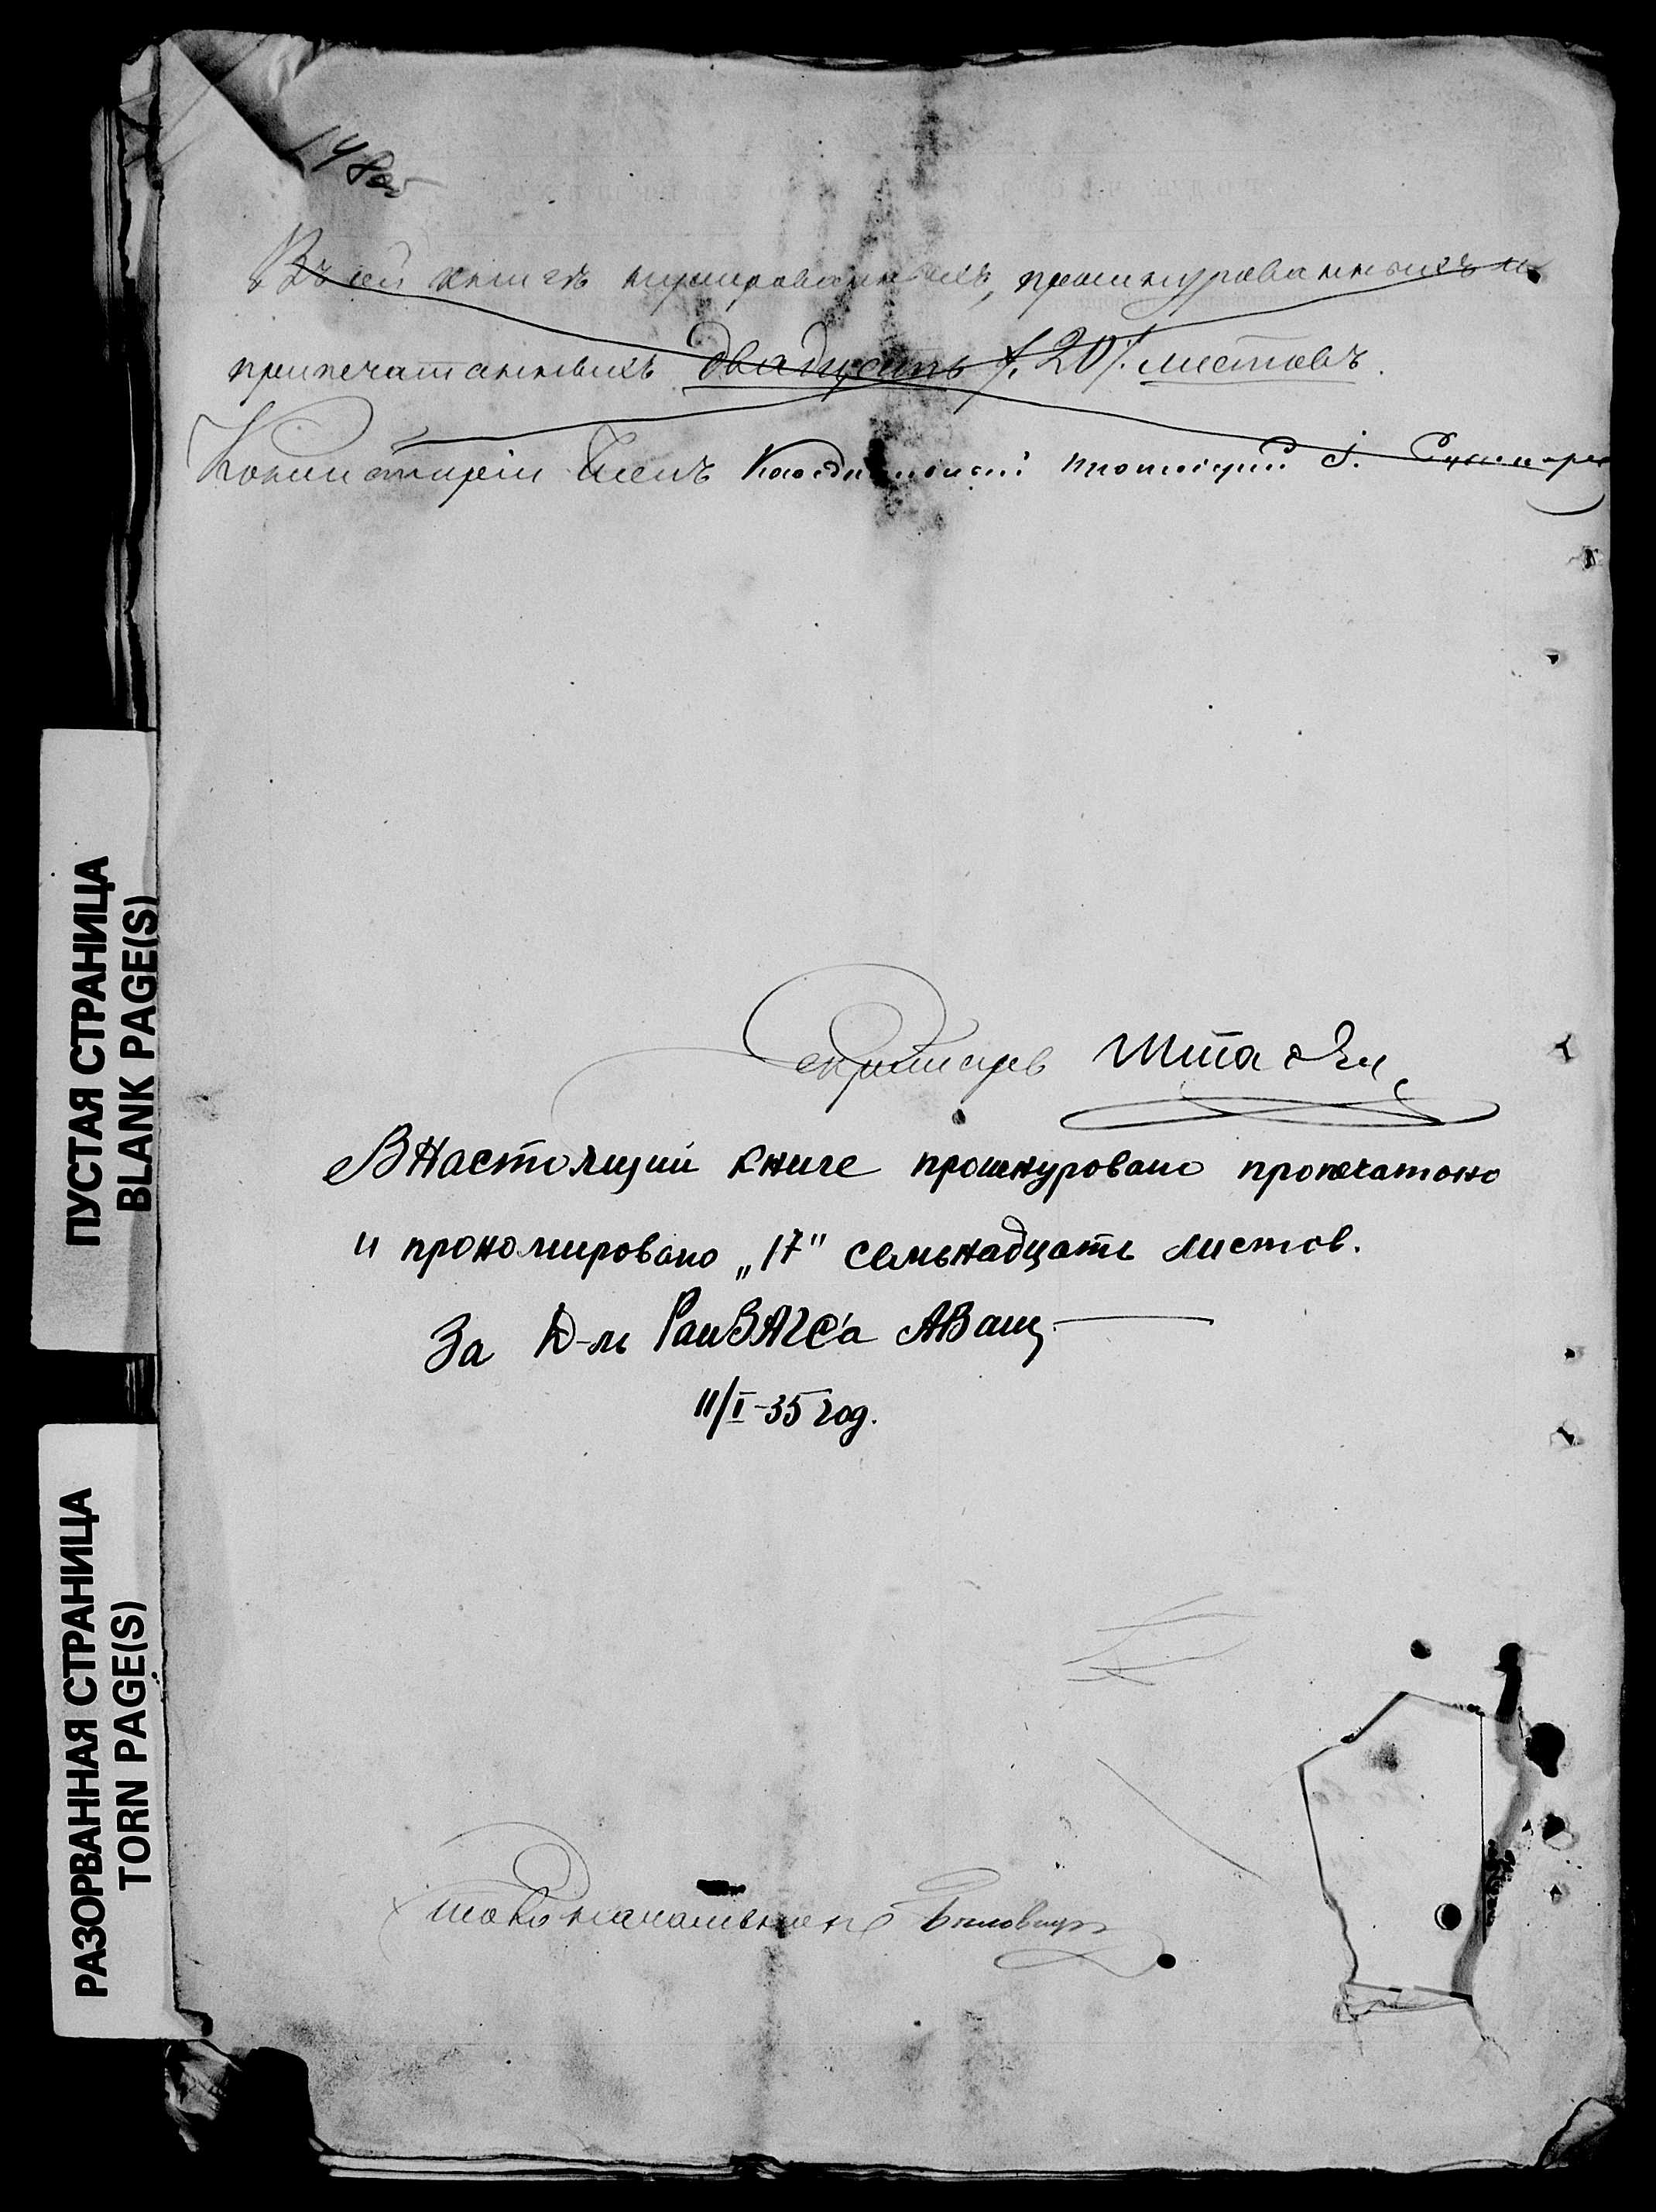 148об
Въ сей книгѣ нумерованныхъ, прошнурованныхъ и
припечатанныхъ двадцать /.20/. листовъ.
Консисторіи Членъ протоіерей І.
Секретарь
В Настоящий книге прошнуровано пропечатоно
и прономировано „17" семьнадцать листов.
За РайЗАГС'а
11/I-35 год.
Столоначальникъ
ПУСТАЯ СТРАНИЦА
BLANK PAGE(S)
РАЗОРВАННАЯ СТРАНИЦА
TORN PAGE(S)